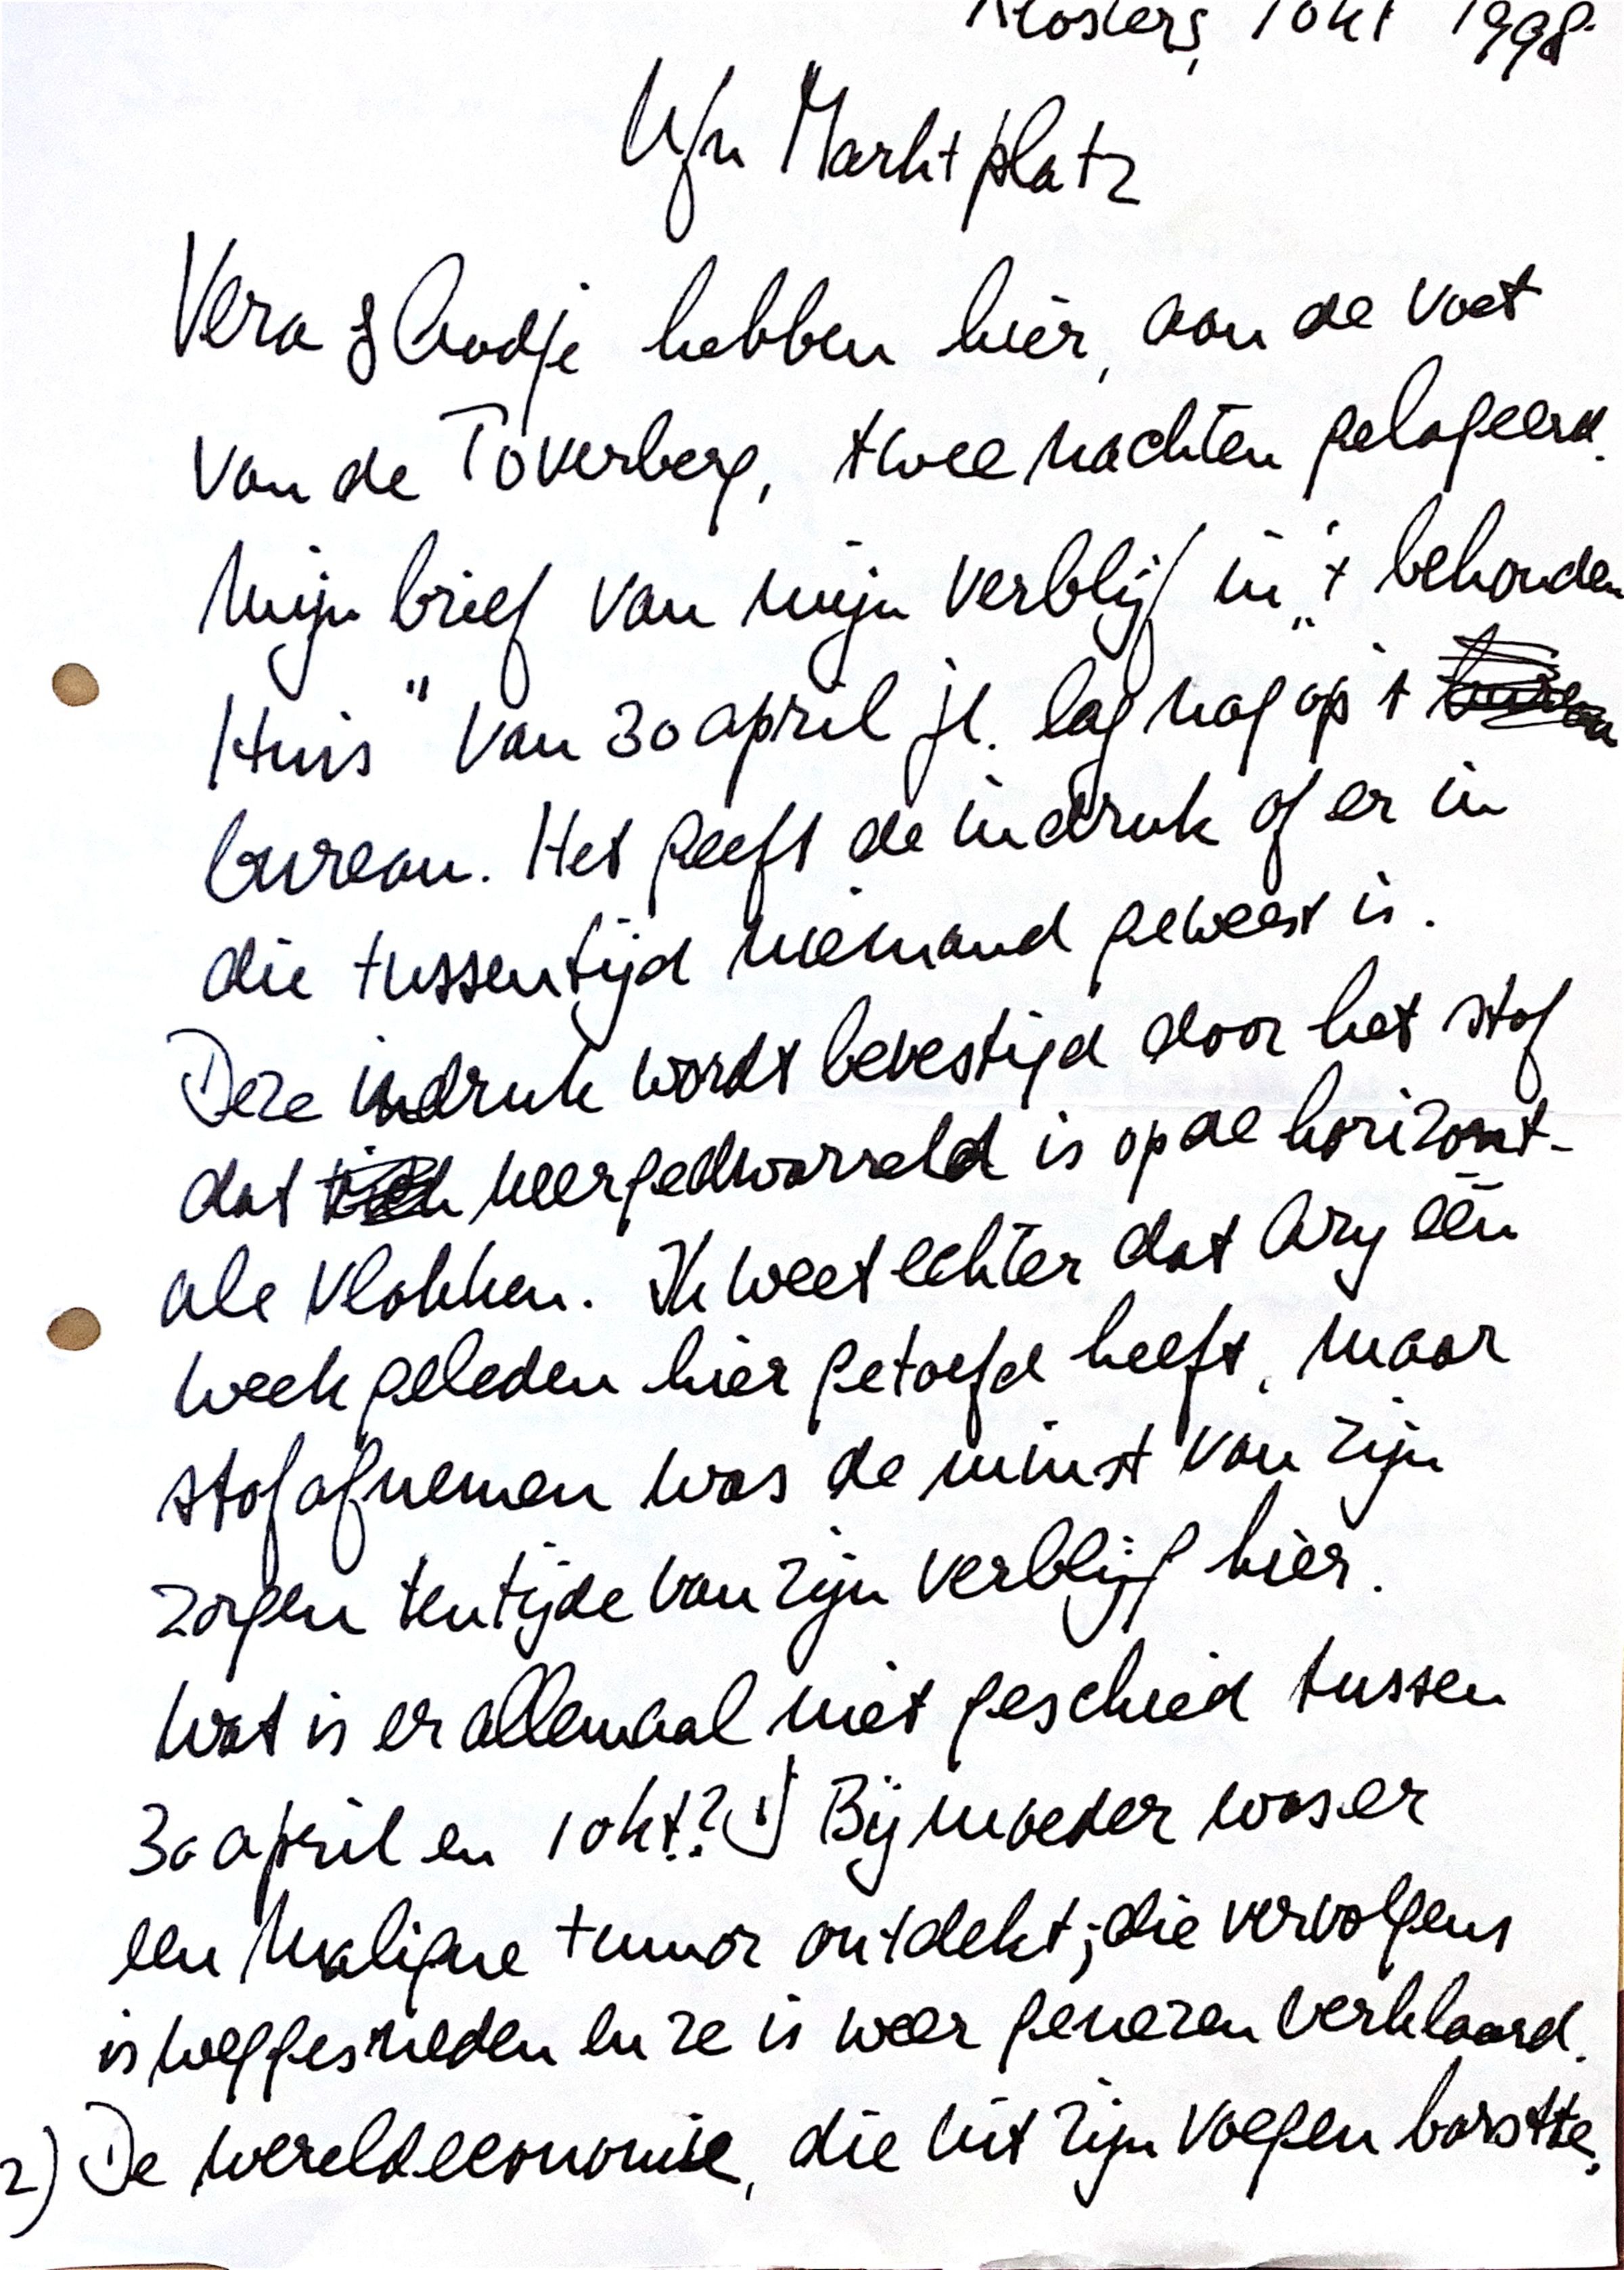 Klosters, 1 okt 1998
Ufm Marktplatz
Vera & Aadje hebben hier, aan de voet
van de Toverberg, twee nachten gelogeerd.
Mijn brief van mijn verblijf in "'t behouden
Huis" van 30 april jl. lag nog op 't
bureau. Het geeft de indruk of er in
die tussentijd niemand geweest is.
Deze indruk wordt bevestigd door het stof
dat neergedwarreld is op de horizont-
ale vlakken. Ik weet echter dat Ary één
week geleden hier getoefd heeft, maar
stof afnemen was de minst van zijn
zorgen ten tijde van zijn verblijf hier.
Wat is er allemaal niet geschied tussen
30 april en 1 okt!? 1) Bij moeder was er
een maligne tumor ontdekt; die vervolgens
is weggesneden en ze is weer genezen verklaard.
2) De wereldeconomie, die uit zijn voegen barstte,